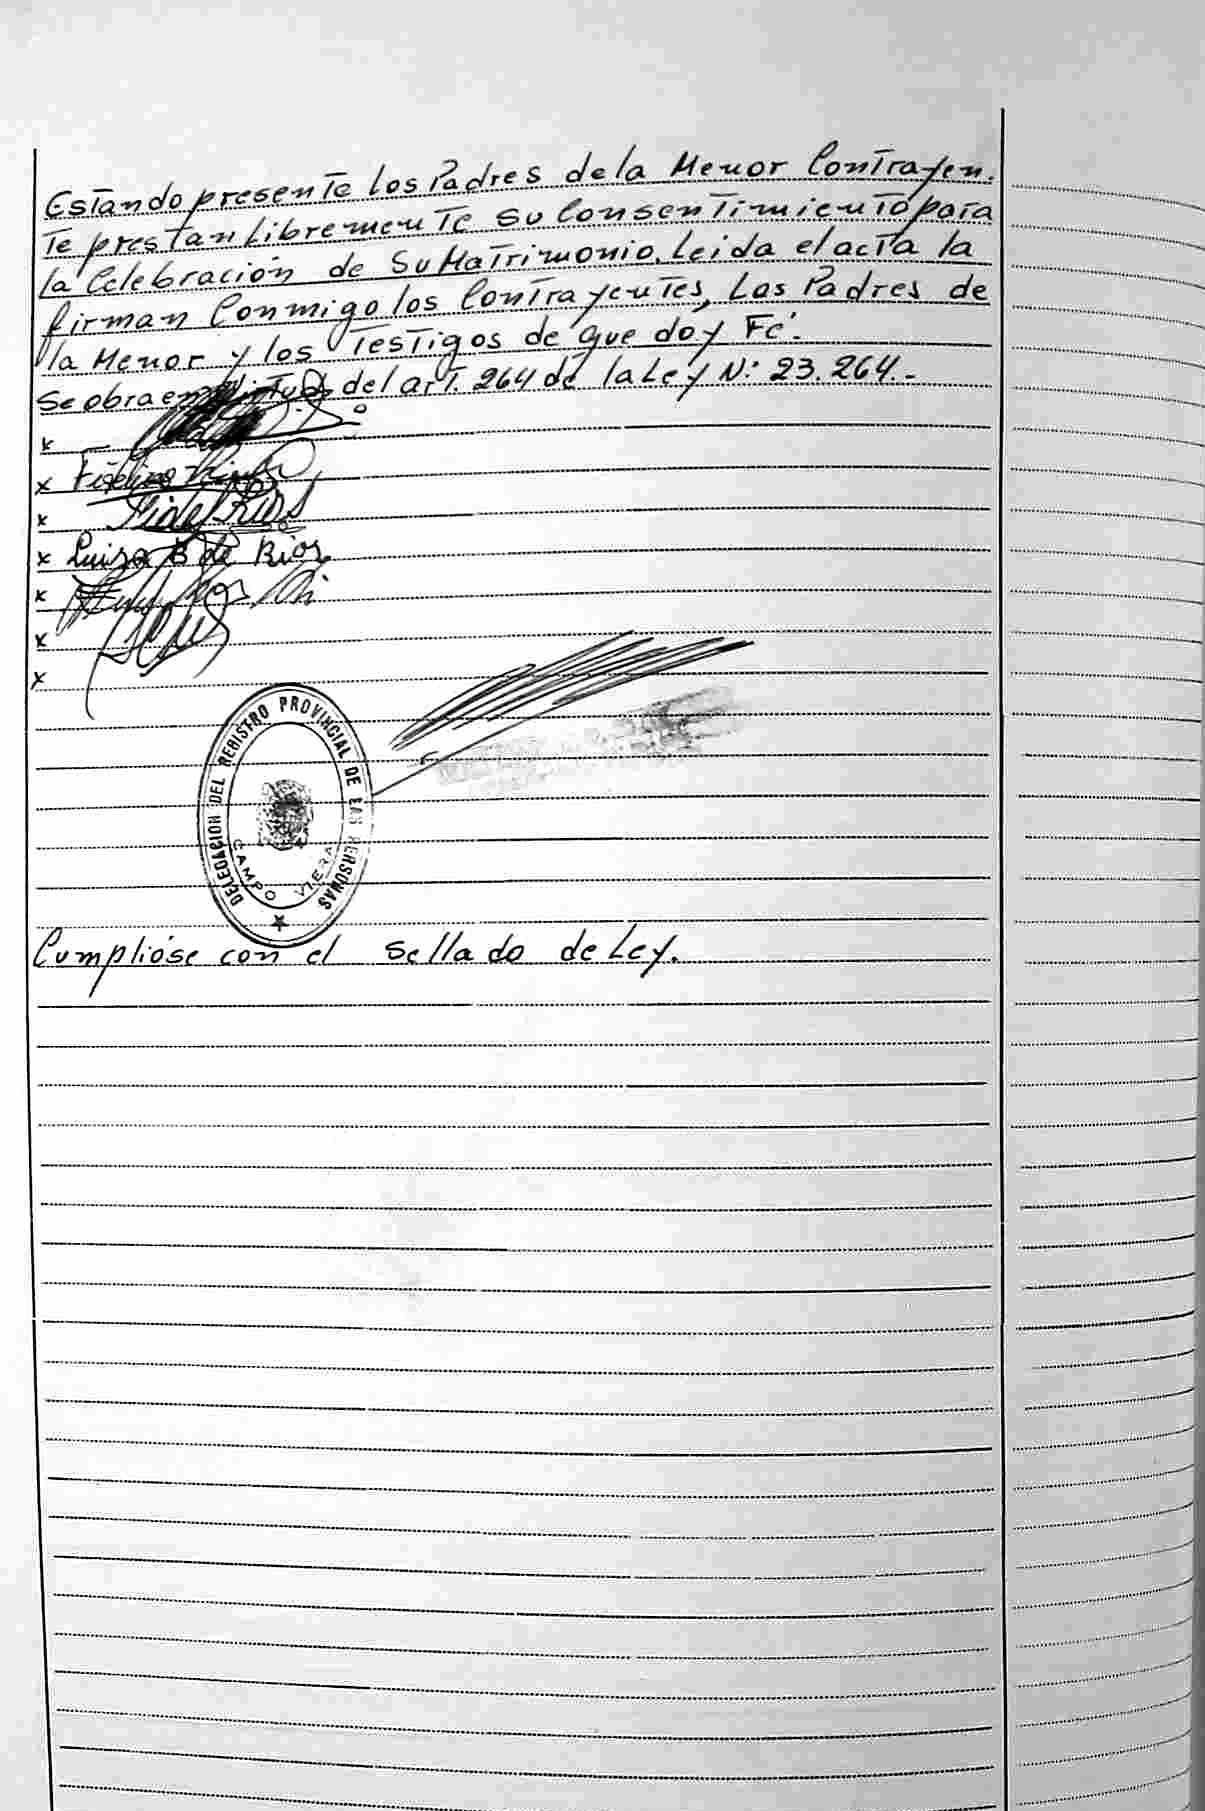 Estando presente los Padres de la Menor Contrayen.
te prestan Libremente su Consentimiento para
la Celebración de Su Matrimonio. Leida el acta la
firman Conmigo los Contrayentes, Los Padres de
la Menor y los Testigos de que doy Fé.
Se obra en virtud del art. 264 de la Ley N: 23.264.-
x
x
x Fidel Rios
x Luisa B de Rios
x
x
x
DELEGACION DEL REGISTRO PROVINCIAL DE LAS PERSONAS
CAMPO VIERA
Cumplióse con el sellado de Ley.